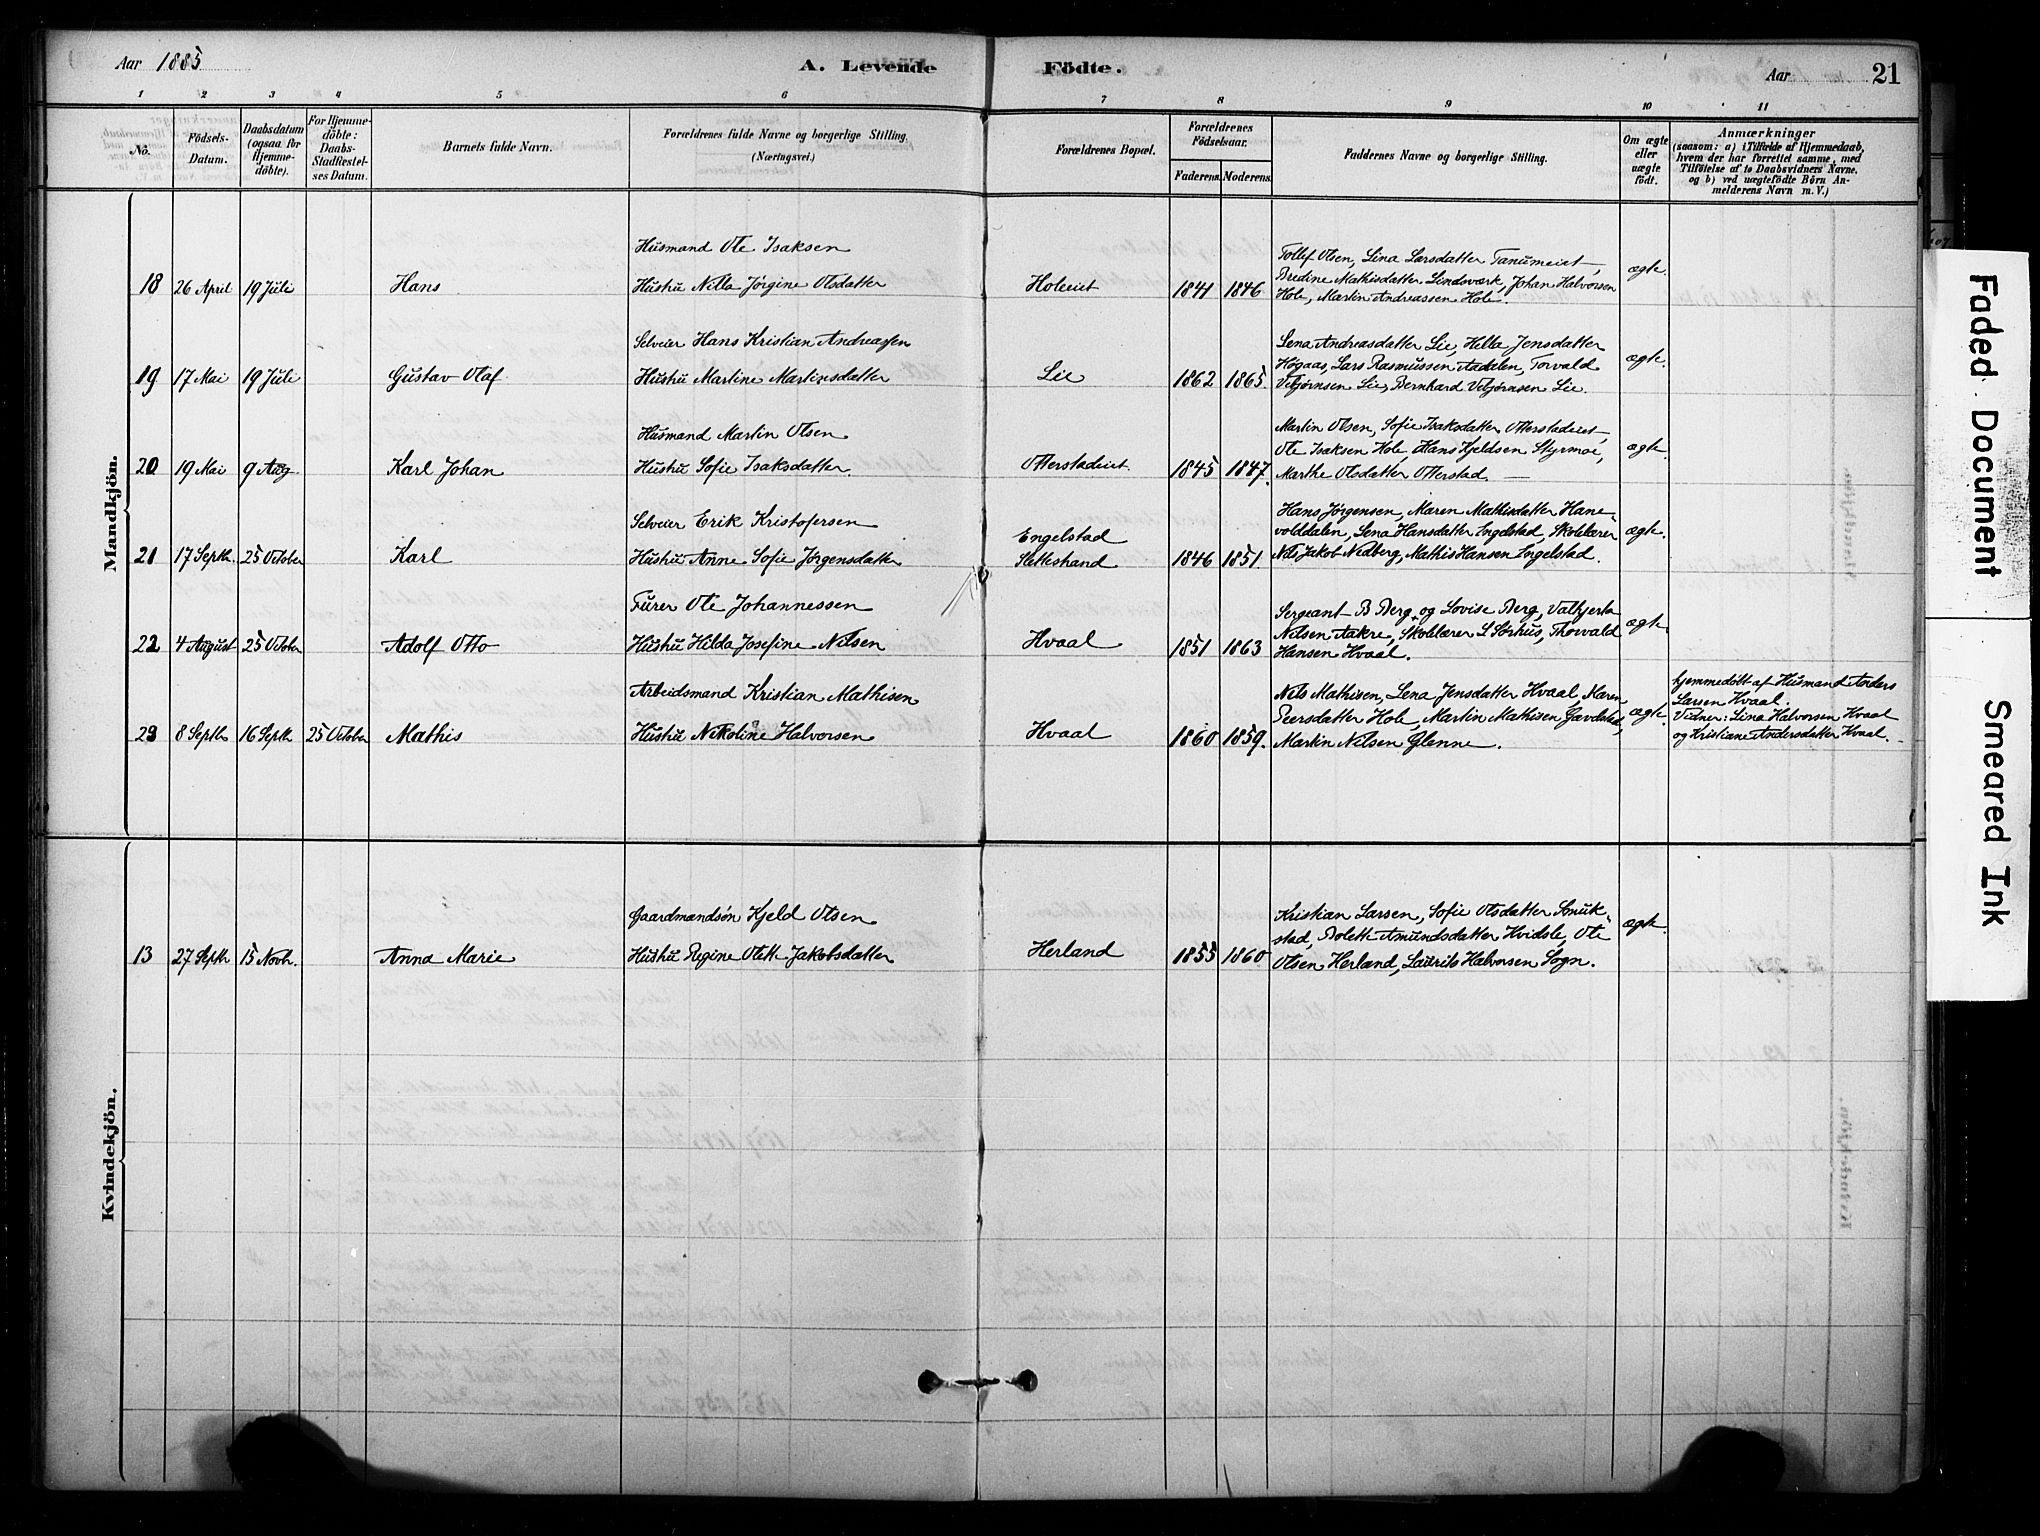 Aar 1885
A. Levende Födte.
Aar
21
1 2 3 4 5 6 7 8 9 10 11
No.
Födsels-Datum.
Daabsdatum (ogsaa for Hjemme-döbte).
For Hjemme-döbte: Daabs-Stadfæstel-ses Datum.
Barnets fulde Navn.
Forældrenes fulde Navne og borgerlige Stilling.
(Næringsvei.)
Forældrenes Bopæl.
Forældrenes Födselsaar.
Faderens. Moderens.
Faddernes Navne og borgerlige Stilling.
Om ægte eller uægte födt.
Anmærkninger
(saasom: a) i Tilfælde af Hjemmedaab,
hvem der har forrettet samme, med
Tilföielse af to Daabsvidners Navne,
og b) ved uægtefödte Börn An-
melderens Navn m. V.)
Mandkjön.
Husmand Ole Isaksen
Tollef Olsen, Lina Larsdatter Tanumeiet,
18 26 April 19 Juli Hans Hustru Nilla Jørgine Olsdatter Holeeiet 1841 1846 Bredine Mathisdatter Lindsværk, Johan Halvorsen ægte.
Hole, Martin Andreassen Hole.
Selveier Hans Kristian Andreassen
Lena Andreasdatter Lie, Hella Jensdatter
19 17 Mai 19 Juli Gustav Olaf Hustru Martine Martinsdatter Lie 1862 1865 Högaas, Lars Rasmussen Aadalen, Torvald ægte.
Vebjørnsen Lie, Bernhard Vebjørnsen Lie.
Husmand Martin Olsen
Martin Olsen, Sofie Isaksdatter Otterstadeiet,
20 19 Mai 9 Aug Karl Johan Hustru Sofie Isaksdatter. Otterstadeiet 1845 1847. Ole Isaksen Hole, Hans Kjeldsen Styrmoe, ægte.
Marthe Olsdatter Otterstad.
Selveier Erik Kristofersen
Engelstad
Hans Jörgensen, Maren Mathisdatter Hane-
21 17 Septb. 25 October Karl Hustru Anne Sofie Jörgensdatter Slettestrand 1846 1851 volddalen, Lena Hansdatter Ingelstad, Skolelærer ægte.
Nils Jakob Nedberg, Mathis Hansen Ingelstad.
Furer Ole Johannessen
Sergeant B Berg og Lovise Berg, Valkjerta
22 4 August 25 October Adolf Otto Hustru Hilda Josefine Nilsen Hvaal 1851 1863 Nilsen Aakre, Skolelærer L Sörhus, Thorvald ægte.
Hansen Hvaal.
Arbeidsmand Kristian Mathisen
Nils Mathisen, Lena Jensdatter Hvaal, Maren
23 8 Septb 16 Septb 25 October Mathis Hustru Nikoline Halvorsen Hvaal 1860 1859. Peersdatter Hole, Martin Mathisen Gavelstad, ægte.
Martin Nilsen Glenne.
hjemmedöbt af Husmand Anders
Larsen Hvaal.
Vidner: Lina Halvorsen Hvaal
og Kristiane Andersdatter Hvaal.
Kvindekjön.
Gaardmandsön Kjeld Olsen
Kristian Larsen, Sofie Olsdatter Smuk-
13 27 Septb 15 Novb. Anna Marie Hustru Regine Olette Jakobsdatter Herland 1855 1860 stad, Bolette Amundsdatter Hvidsle, Ole ægte.
Olsen Herland, Laurits Halvorsen Sogn.
Faded Document
Smeared Ink